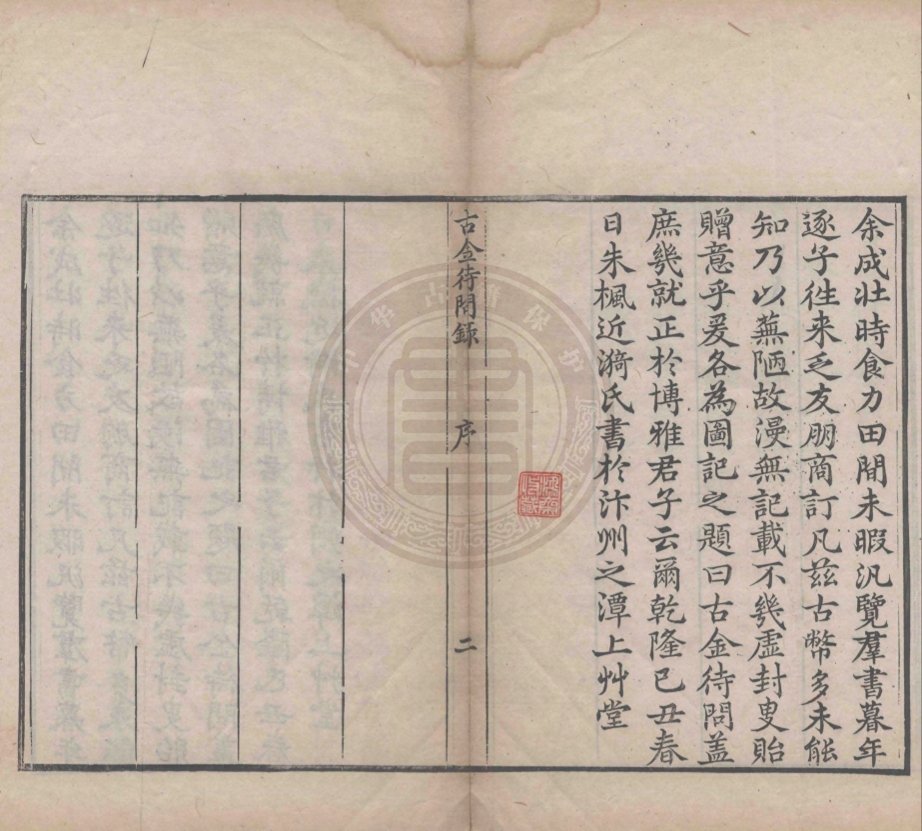 余成壯時食力田間未暇汎覽羣書暮年
逐子徃来乏友朋商訂凡茲古幣多未能
知乃以蕪陋故漫無記載不幾虛封叟貽
贈意乎爰各為圖記之題曰古金待問蓋
庶幾就正於博雅君子云爾乾隆已丑春
日朱楓近漪氏書於汴州之潭上艸堂
古金待問錄
序
二